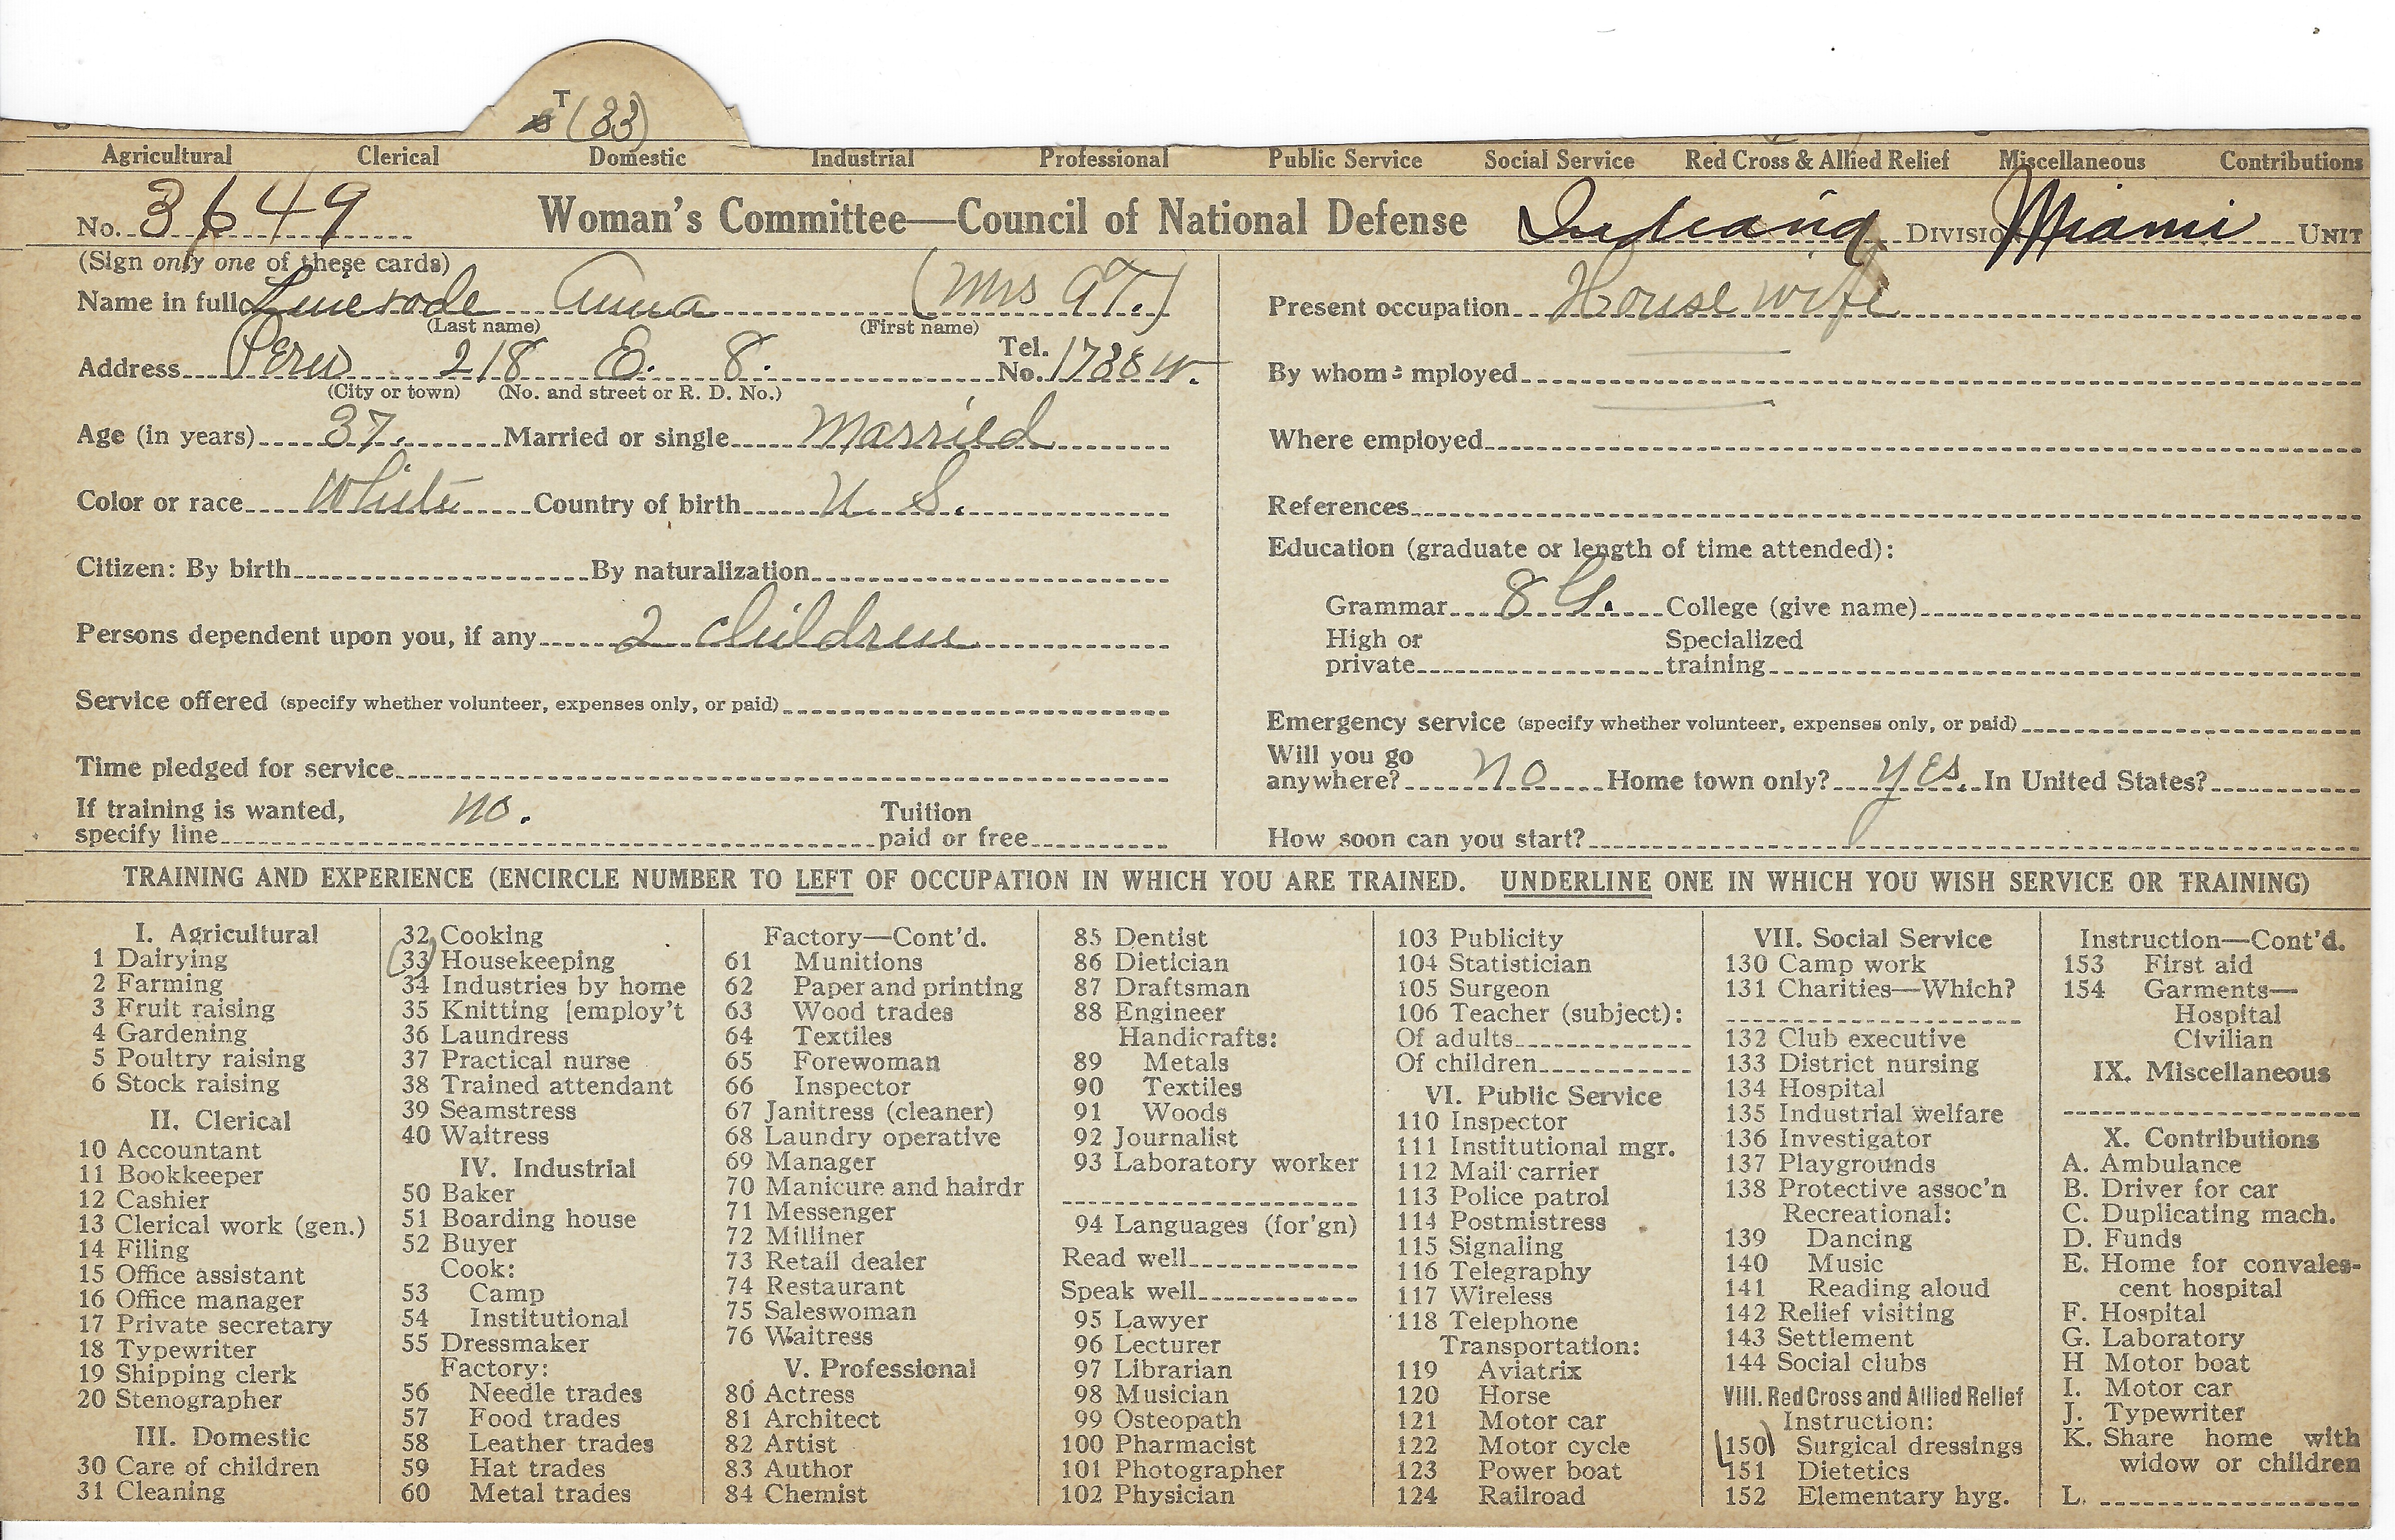 T (33)
Agricultural Clerical Domestic Industrial Professional Public Service Social Service Red Cross & Allied Relief Miscellaneous Contributions
No. 3649 Woman's Committee—Council of National Defense Indiana DIVISION Miami UNIT
(Sign only one of these cards)
Name in full Linerode Anna (Mrs A T.)
(Last name) (First name)
Address Peru 218 E. 8. Tel. No. 1738 W.
(City or town) (No. and street or R. D. No.)
Age (in years) 37. Married or single Married
Color or race White Country of birth U S.
Citizen: By birth By naturalization
Persons dependent upon you, if any 2 children
Service offered (specify whether volunteer, expenses only, or paid)
Time pledged for service
If training is wanted, specify line no. Tuition paid or free
Present occupation House wife
By whom employed
Where employed
References
Education (graduate or length of time attended):
Grammar 8 G. College (give name)
High or private Specialized training
Emergency service (specify whether volunteer, expenses only, or paid)
Will you go anywhere? no Home town only? yes. In United States?
How soon can you start?
TRAINING AND EXPERIENCE (ENCIRCLE NUMBER TO LEFT OF OCCUPATION IN WHICH YOU ARE TRAINED. UNDERLINE ONE IN WHICH YOU WISH SERVICE OR TRAINING)
I. Agricultural
1 Dairying
2 Farming
3 Fruit raising
4 Gardening
5 Poultry raising
6 Stock raising
II. Clerical
10 Accountant
11 Bookkeeper
12 Cashier
13 Clerical work (gen.)
14 Filing
15 Office assistant
16 Office manager
17 Private secretary
18 Typewriter
19 Shipping clerk
20 Stenographer
III. Domestic
30 Care of children
31 Cleaning
32 Cooking
33 Housekeeping
34 Industries by home
35 Knitting [employ't
36 Laundress
37 Practical nurse
38 Trained attendant
39 Seamstress
40 Waitress
IV. Industrial
50 Baker
51 Boarding house
52 Buyer
Cook:
53 Camp
54 Institutional
55 Dressmaker
Factory:
56 Needle trades
57 Food trades
58 Leather trades
59 Hat trades
60 Metal trades
Factory—Cont'd.
61 Munitions
62 Paper and printing
63 Wood trades
64 Textiles
65 Forewoman
66 Inspector
67 Janitress (cleaner)
68 Laundry operative
69 Manager
70 Manicure and hairdr
71 Messenger
72 Milliner
73 Retail dealer
74 Restaurant
75 Saleswoman
76 Waitress
V. Professional
80 Actress
81 Architect
82 Artist
83 Author
84 Chemist
85 Dentist
86 Dietician
87 Draftsman
88 Engineer
Handicrafts:
89 Metals
90 Textiles
91 Woods
92 Journalist
93 Laboratory worker
94 Languages (for'gn)
Read well
Speak well
95 Lawyer
96 Lecturer
97 Librarian
98 Musician
99 Osteopath
100 Pharmacist
101 Photographer
102 Physician
103 Publicity
104 Statistician
105 Surgeon
106 Teacher (subject):
Of adults
Of children
VI. Public Service
110 Inspector
111 Institutional mgr.
112 Mail carrier
113 Police patrol
114 Postmistress
115 Signaling
116 Telegraphy
117 Wireless
118 Telephone
Transportation:
119 Aviatrix
120 Horse
121 Motor car
122 Motor cycle
123 Power boat
124 Railroad
VII. Social Service
130 Camp work
131 Charities—Which?
132 Club executive
133 District nursing
134 Hospital
135 Industrial welfare
136 Investigator
137 Playgrounds
138 Protective assoc'n
Recreational:
139 Dancing
140 Music
141 Reading aloud
142 Relief visiting
143 Settlement
144 Social clubs
VIII. Red Cross and Allied Relief
Instruction:
150 Surgical dressings
151 Dietetics
152 Elementary hyg.
Instruction—Cont'd.
153 First aid
154 Garments—
Hospital
Civilian
IX. Miscellaneous
X. Contributions
A. Ambulance
B. Driver for car
C. Duplicating mach.
D. Funds
E. Home for convales-
cent hospital
F. Hospital
G. Laboratory
H Motor boat
I. Motor car
J. Typewriter
K. Share home with
widow or children
L.